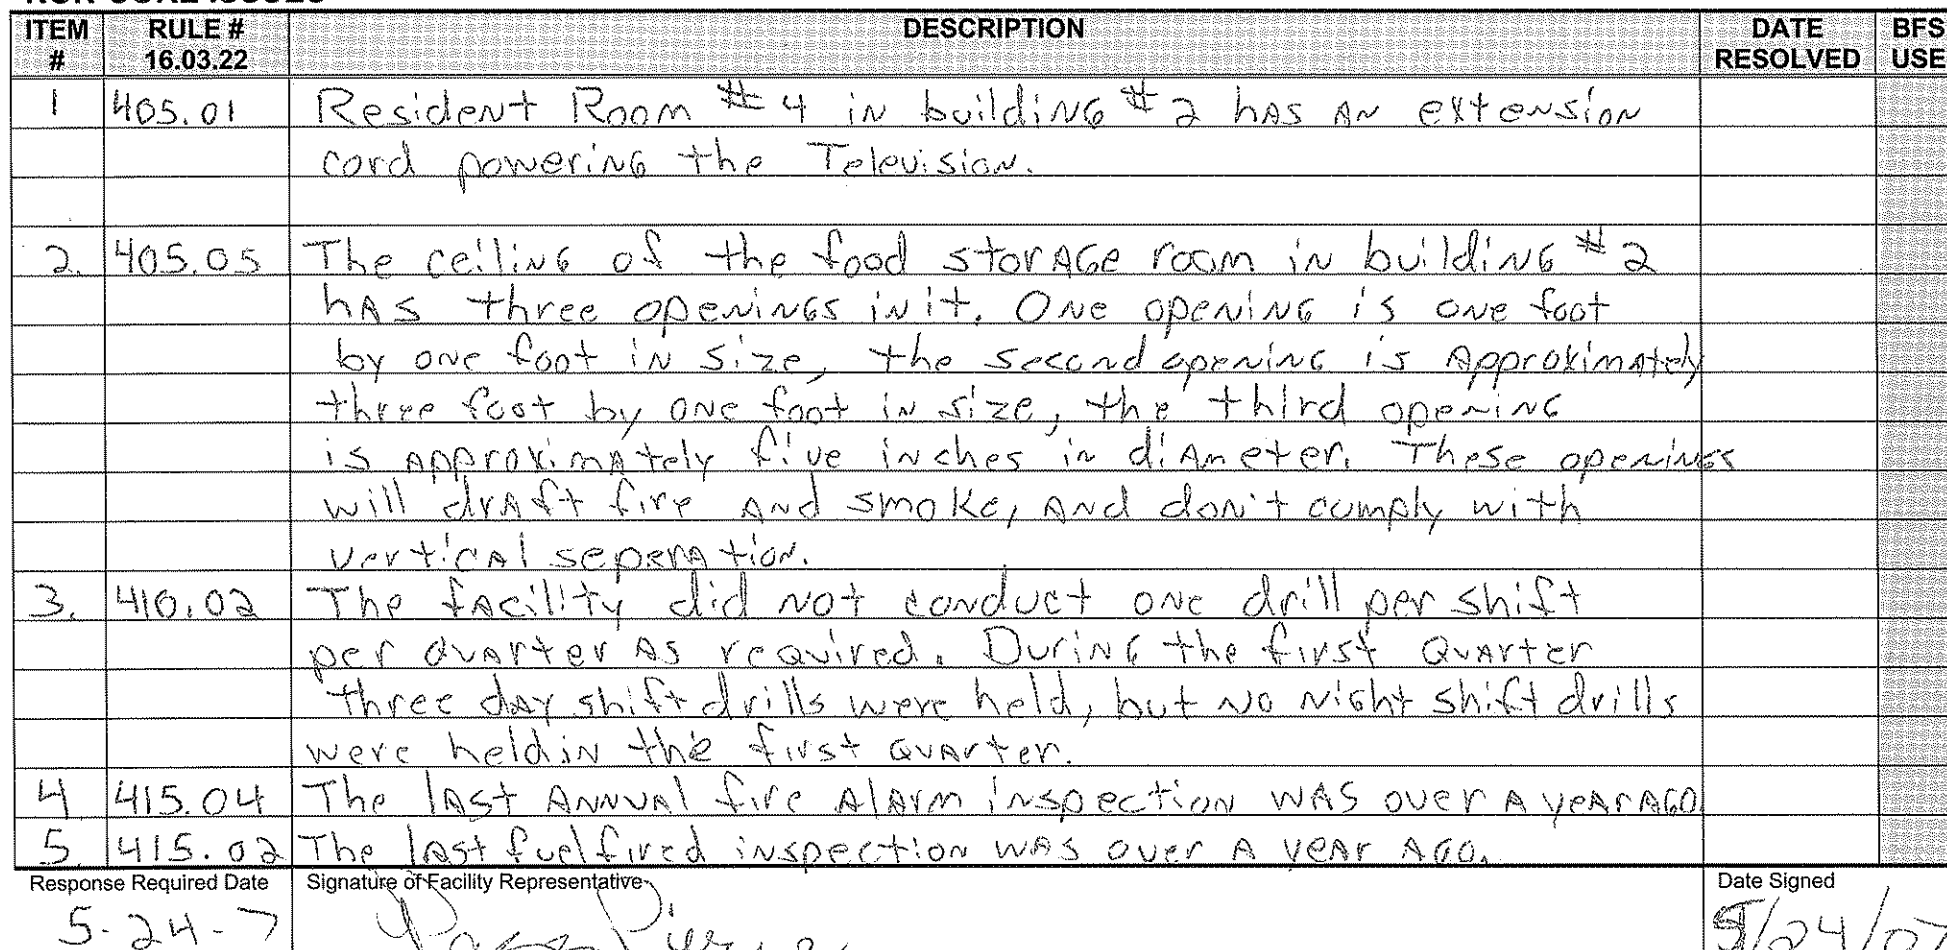 ITEM # RULE # 16.03.22 DESCRIPTION DATE RESOLVED BFS USE
1 405.01 Resident Room #4 in building #2 has an extension
cord powering the Television.
2. 405.05 The ceiling of the food storage room in building #2
has three openings in it. One opening is one foot
by one foot in size, the second opening is approximately
three foot by one foot in size, the third opening
is approximately five inches in diameter. These openings
will draft fire and smoke, and don't comply with
vertical seperation.
3. 410.02 The facility did not conduct one drill per shift
per quarter as required. During the first quarter
three day shift drills were held, but no night shift drills
were held in the first quarter.
4 415.04 The last annual fire alarm inspection was over a year ago
5. 415.02 The last fuel fired inspection was over a year ago.
Response Required Date Signature of Facility Representative Date Signed
5-24-7 5/24/07